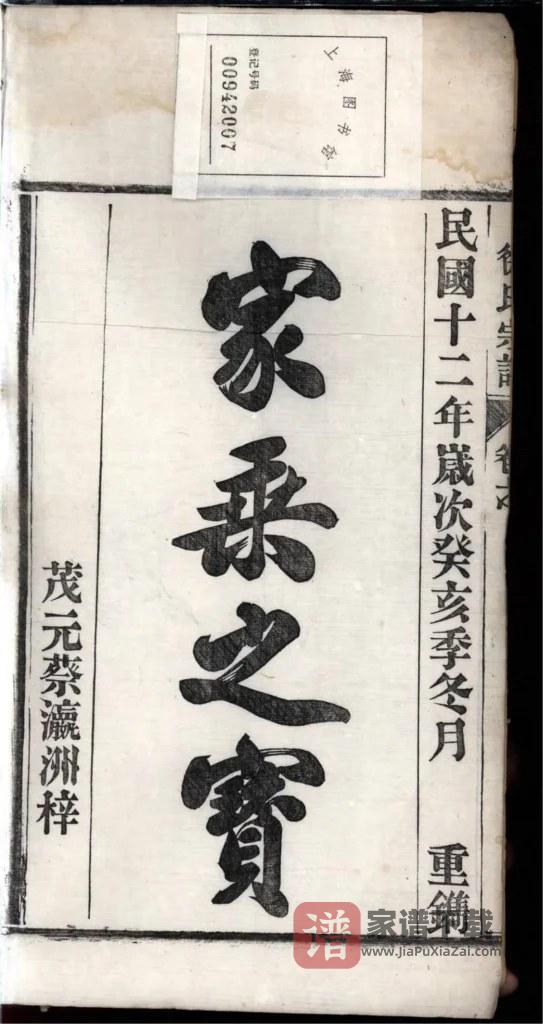 上海图书馆
登记号码
00942007
氏宗譜
民國十二年歲次癸亥季冬月 重鐫
家乘之寶
茂元蔡瀛洲梓
谱
家谱下载
www.JiaPuXiaZai.com